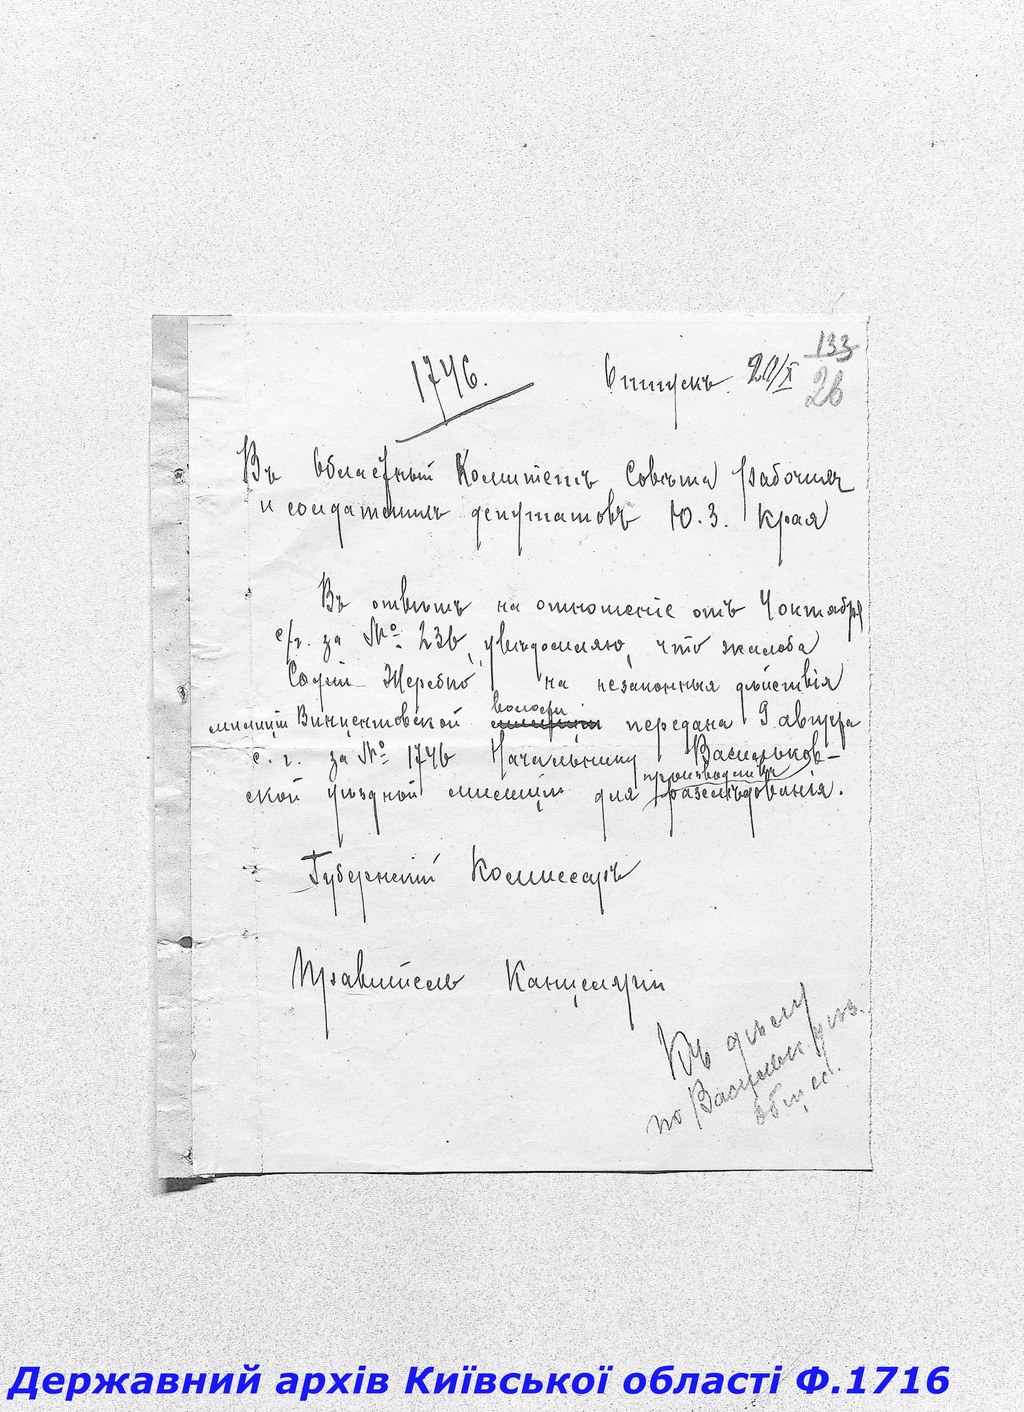 133
26
1746. Отпускъ. 20/X
Въ Областный Комитетъ Совѣта рабочихъ
и солдатскихъ депутатовъ Ю.З. Края
Въ отвѣтъ на отношеніе отъ 4 октября
с/г. за № 236, увѣдомляю, что жалоба
Софіи Жеребко на незаконныя дѣйствія
милиціи Винцентовской волости передана 9 августа
с. г. за № 1746 Начальнику Васильков-
ской уѣздной милиціи для производства разслѣдованія.
Губернскій Комиссаръ
Правитель Канцеляріи
Къ дѣлу
по Васильк. уѣз.
общ.
Державний архів Київської області Ф.1716